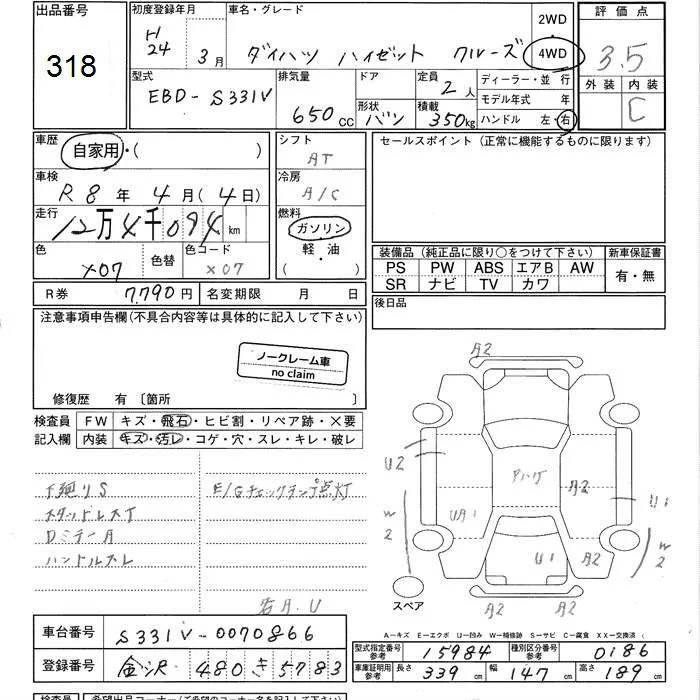 出品番号
318
初度登録年月 H24 3月
車名・グレード ダイハツ ハイゼット クルーズ
2WD
4WD
評価点
3.5
外装 内装
C
型式 EBD-S331V
排気量 650cc
ドア
形状 バン
定員 2人
積載 350kg
ディーラー・並行
モデル年式 年
ハンドル 左・右
車歴 自家用・( )
車検 R8年4月(4日)
走行 12万4千094km
色 X07
色替
色コード X07
シフト AT
冷房 A/C
燃料
ガソリン
軽・油
( )
セールスポイント(正常に機能するものに限ります)
装備品(純正品に限り○をつけて下さい) 新車保証書
PS PW ABS エアB AW
SR ナビ TV カワ
有・無
R券 7,790円
名変期限 月 日
後日品
注意事項申告欄(不具合内容等は具体的に記入して下さい)
ノークレーム車
no claim
修復歴 有〔箇所 〕
検査員 FW キズ・飛石・ヒビ割・リペア跡・×要
記入欄 内装 キズ・汚レ・コゲ・穴・スレ・キレ・破レ
下廻りS
スタッドレスT
Dミラー A
ハンドルスレ
E/Gチェックランプ点灯
右A.U
A2
U2
W2
UA1
Pハゲ
A2
U1
W2
U1
A2
スペア
A2 A2
A…キズ E…エクボ U…凹み W…補修跡 S…サビ C…腐食 XX…交換済
車台番号 S331V-0070866
登録番号 金沢 480 き 5783
型式指定番号 参考 15984
種別区分番号 参考 0186
車庫証明用 参考 長さ 339cm 幅 147cm 高さ 189cm